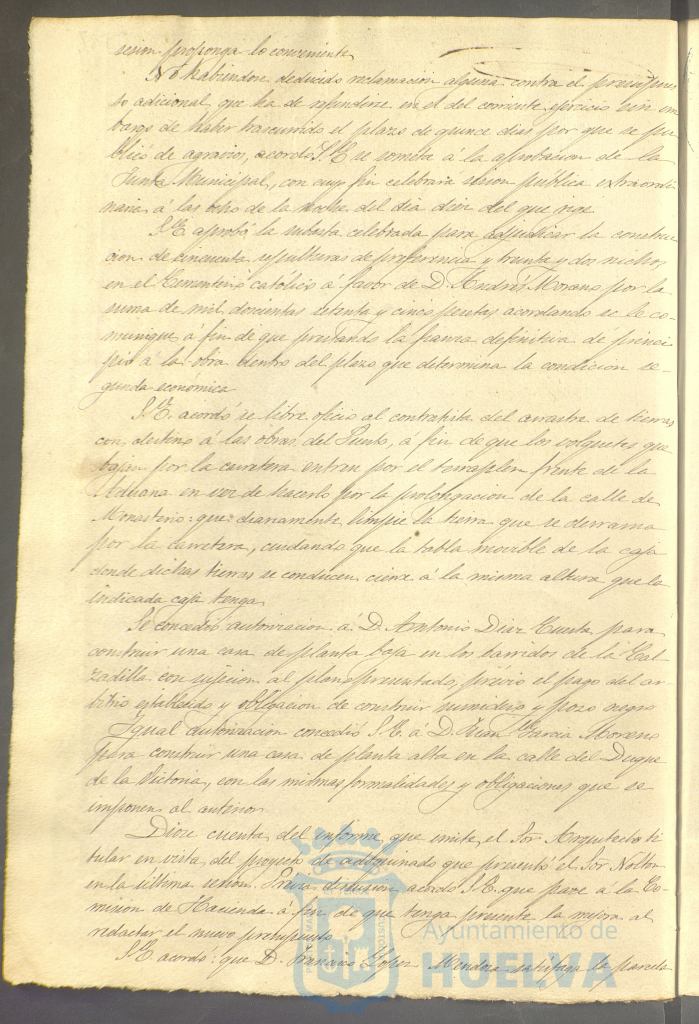 sesion proponga lo conveniente.
No habiendose deducido reclamacion alguna contra el presupues-
to adicional que ha de refundirse en el del corriente ejercicio sin em
bargo de haber trascurrido el plazo de quince dias por que se pu
blicó de agravios, acordó S.E. se someta á la aprobacion de la
Junta Municipal, con cuyo fin celebrará sesion pública extraordi
naria á las ocho de la noche del dia diez del que rige
S.E. aprobó la subasta celebrada para adjudicar la construc
cion de cincuenta sepulturas de preferencia y treinta y dos nichos
en el Cementerio católico á favor de D. Andrés Morano por la
suma de mil doscientas setenta y cinco pesetas acordando se le co-
munique á fin de que prestando la fianza definitiva dé princi
pio á la obra dentro del plazo que determina la condicion se-
gunda economica
S.E. acordó se libre oficio al contratista del arrastre de tierras
con destino á las obras del Punto, á fin de que los volquetes que
bajen por la carretera entren por el terraplen frente de la
Aduana en vez de hacerlo por la prolongacion de la calle de
Monasterio: que diariamente limpie la tierra que se derrama
por la carretera, cuidando que la tabla movible de la caja
donde dichas tierras se conducen cierre á la misma altura que la
indicada caja tenga
Se concedió autorizacion á D. Antonio Diaz Cuesta para
construir una casa de planta baja en los barridos de la Cal
zadilla con sujecion al plano presentado, prévio el pago del ar
bitrio establecido y obligacion de construir sumidero y pozo negro
Igual autorizacion concedió S.E. á D. Juan Garcia Moreno
para construir una casa de planta alta en la calle del Duque
de la Victoria, con las mismas formalidades y obligaciones que se
imponen al anterior
Diose cuenta del informe que emite el Sor Arquitecto ti
tular en vista del proyecto de adoquinado que presentó el Sor
en la última sesion. Prévia discusion acordó S.E. que pase á la Co-
mision de Hacienda á fin de que tenga presente la mejora al
redactar el nuevo presupuesto
S.E. acordó: que D. Francisco Lopez Mendoza satisfaga la parcela
Ayuntamiento de
HUELVA